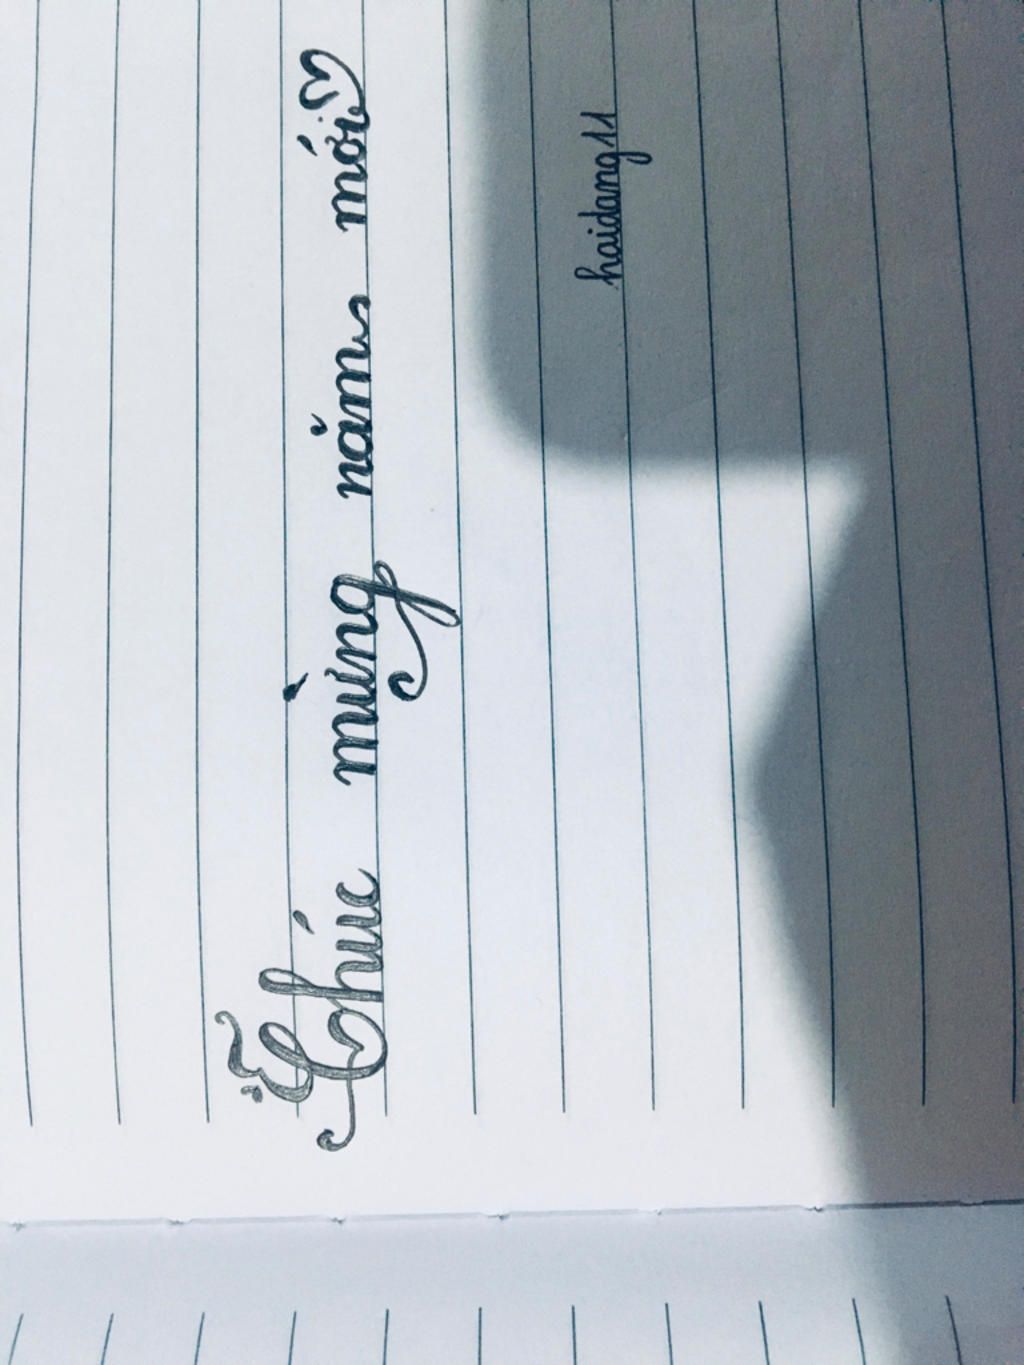 Chúc mừng năm mới
haidang11